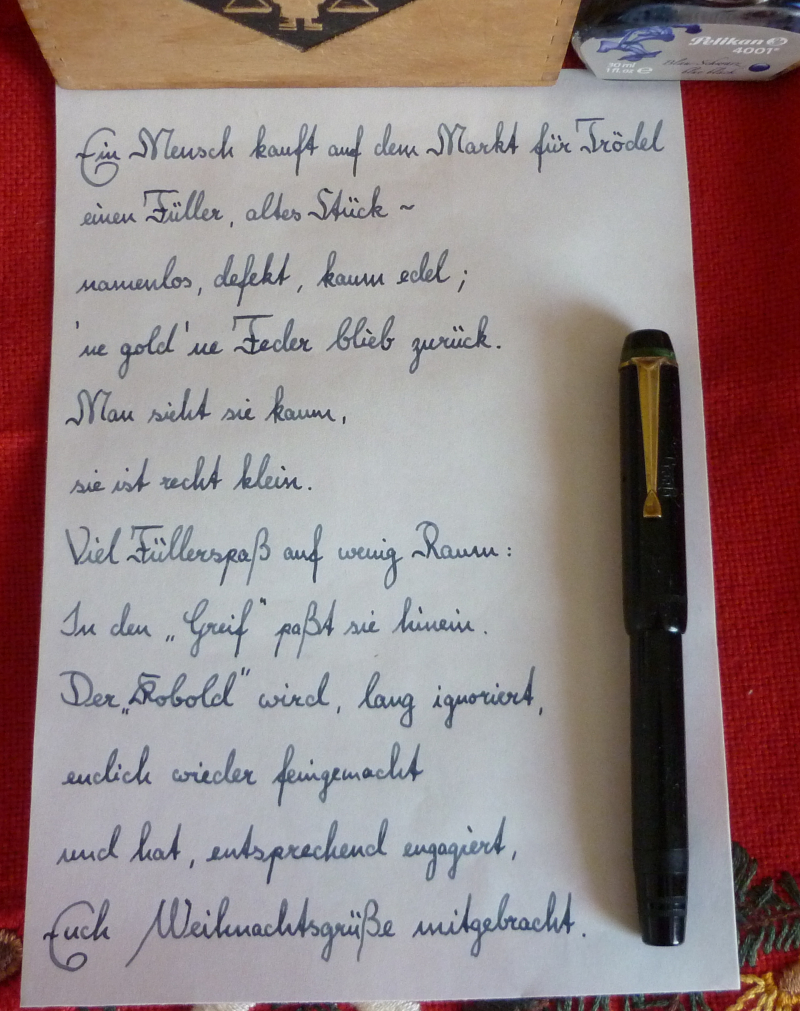 Pelikan
4001®
30 ml
1 fl. oz e
Blau-Schwarz
blue-black
Ein Mensch kauft auf dem Markt für Trödel
einen Füller, altes Stück ~
namenlos, defekt, kaum edel;
'ne gold'ne Feder blieb zurück.
Man sieht sie kaum,
sie ist recht klein.
Viel Füllerspaß auf wenig Raum:
In den „Greif" paßt sie hinein.
Der „Kobold" wird, lang ignoriert,
endlich wieder feingemacht
und hat, entsprechend engagiert,
Euch Weihnachtsgrüße mitgebracht.